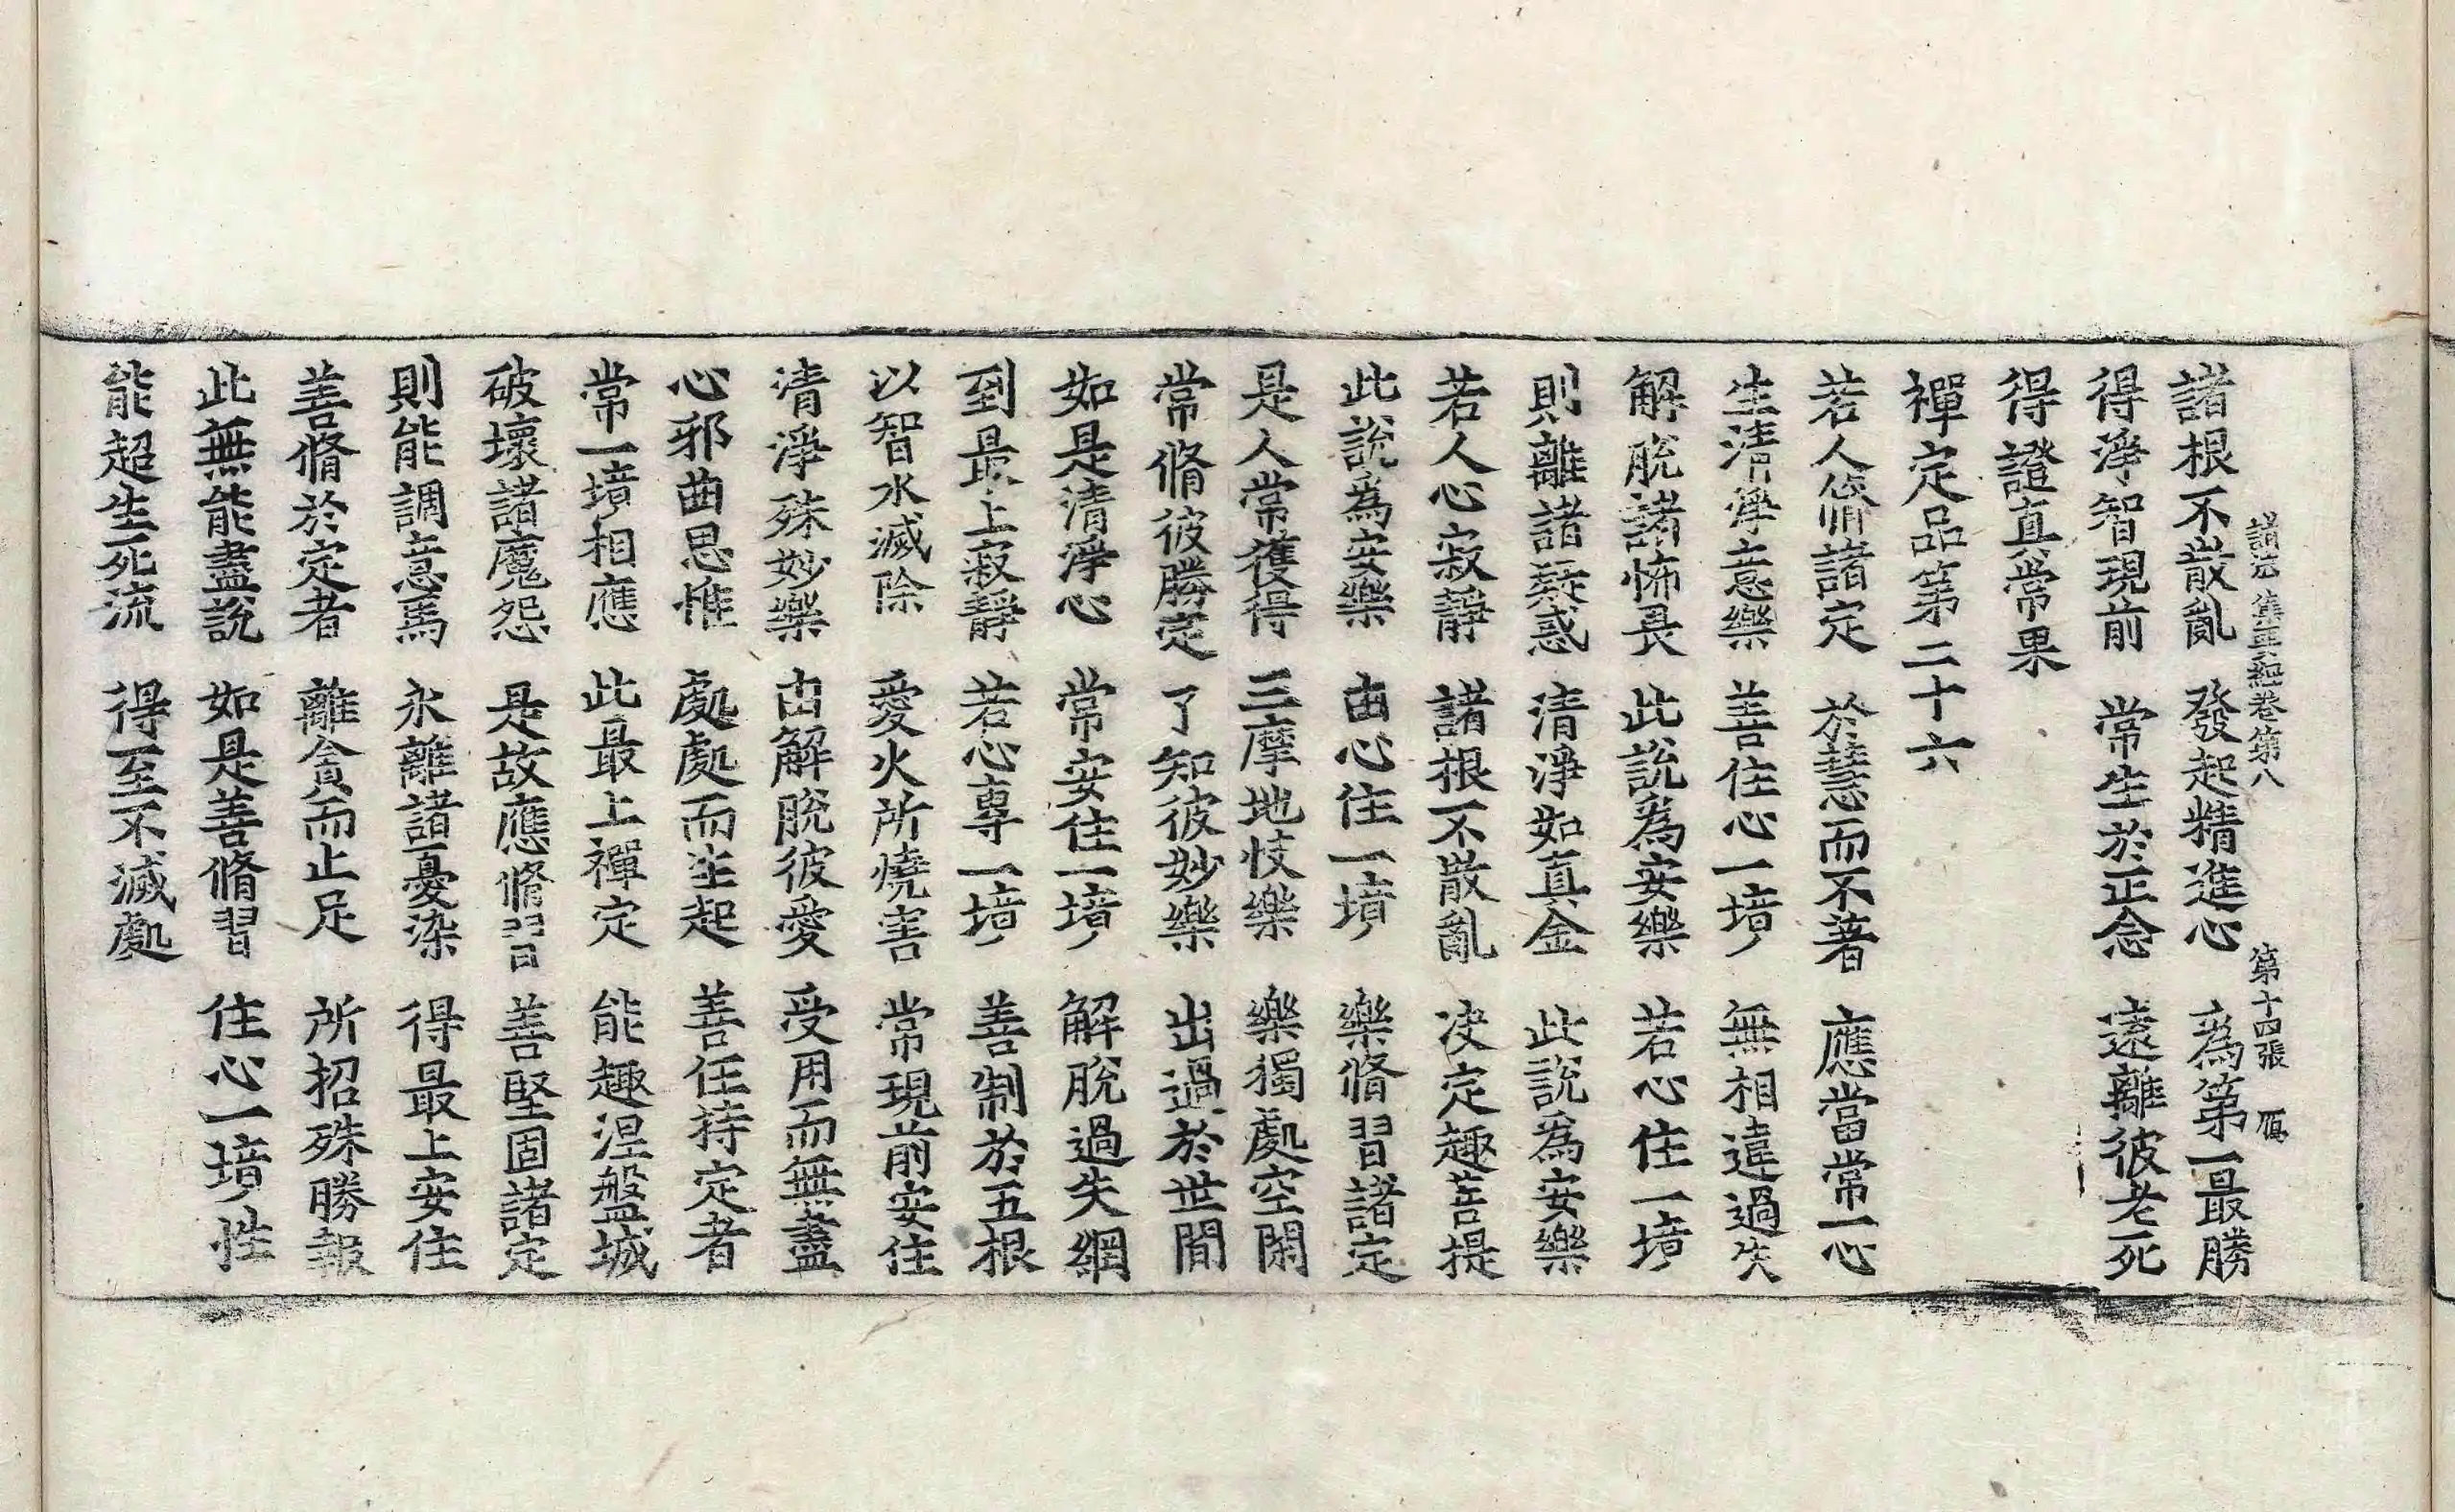 諸法集要經卷第八 第十四張 鴈
諸根不散亂 發起精進心 為第一最勝
得淨智現前 常生於正念 遠離彼老死
得證真常果
禪定品第二十六
若人脩諸定 於慧而不著 應當常一心
生清淨意樂 善住心一境 無相違過失
解脫諸怖畏 此說為安樂 若心住一境
則離諸疑惑 清淨如真金 此說為安樂
若人心寂靜 諸根不散亂 决定趣菩提
此說為安樂 由心住一境 樂脩習諸定
是人常獲得 三摩地忮樂 樂獨處空閑
常脩彼勝定 了知彼妙樂 出過於世間
如是清淨心 常安住一境 解脫過失網
到最上寂靜 若心專一境 善制於五根
以智水滅除 愛火所燒害 常現前安住
清淨殊妙樂 由解脫彼愛 受用而無盡
心邪曲思惟 處處而生起 善任持定者
常一境相應 此最上禪定 能趣涅盤城
破壞諸魔怨 是故應脩習 善堅固諸定
則能調意馬 永離諸憂染 得最上安住
善脩於定者 離貪而止足 所招殊勝報
此無能盡說 如是善脩習 住心一境性
能超生死流 得至不滅處